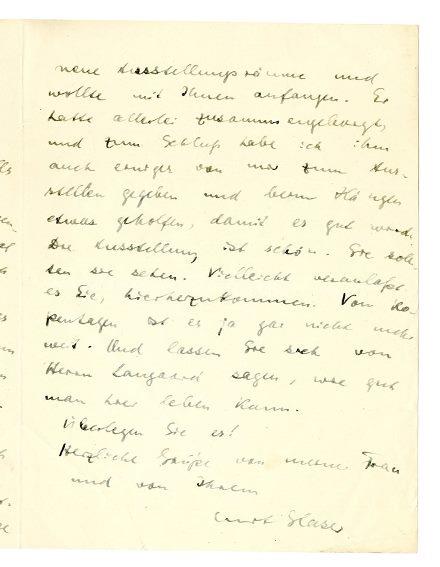 neue Ausstellungsräume und
wollte mit Ihnen anfangen. Er
hatte allerlei zusammengeborgt,
und zum Schluß habe ich ihm
auch einiges von mir zum Aus-
stellen gegeben und beim Hängen
etwas geholfen, damit es gut wird.
Die Ausstellung ist schön. Sie soll-
ten sie sehen. Vielleicht veranlaßt
es Sie, hierherzukommen. Von Ko-
penhagen ist es ja gar nicht mehr
weit. Und lassen Sie sich von
Herrn Langaard sagen, wie gut
man hier leben kann.
Überlegen Sie es!
Herzliche Grüße von meiner Frau
und von Ihrem
Curt Glaser